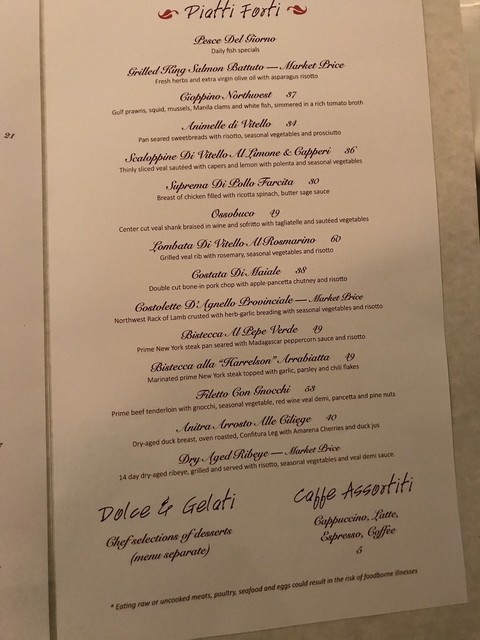 Piatti Forti
Pesce Del Giorno
Daily fish specials
Grilled King Salmon Battuto — Market Price
Fresh herbs and extra virgin olive oil with asparagus risotto
Cioppino Northwest 37
Gulf prawns, squid, mussels, Manila clams and white fish, simmered in a rich tomato broth
Animelle di Vitello 34
Pan seared sweetbreads with risotto, seasonal vegetables and prosciutto
21
Scaloppine Di Vitello Al Limone & Capperi 36
Thinly sliced veal sautéed with capers and lemon with polenta and seasonal vegetables
Suprema Di Pollo Farcita 30
Breast of chicken filled with ricotta spinach, butter sage sauce
Ossobuco 49
Center cut veal shank braised in wine and sofritto with tagliatelle and sautéed vegetables
Lombata Di Vitello Al Rosmarino 60
Grilled veal rib with rosemary, seasonal vegetables and risotto
Costata Di Maiale 38
Double cut bone-in pork chop with apple-pancetta chutney and risotto
Costolette D'Agnello Provinciale — Market Price
Northwest Rack of Lamb crusted with herb-garlic breading with seasonal vegetables and risotto
Bistecca Al Pepe Verde 49
Prime New York steak pan seared with Madagascar peppercorn sauce and risotto
Bistecca alla "Harrelson" Arrabiatta 49
Marinated prime New York steak topped with garlic, parsley and chili flakes
Filetto Con Gnocchi 53
Prime beef tenderloin with gnocchi, seasonal vegetable, red wine veal demi, pancetta and pine nuts
Anitra Arrosto Alle Ciliege 40
Dry-aged duck breast, oven roasted, Confitura Leg with Amarena Cherries and duck jus
Dry Aged Ribeye — Market Price
14 day dry-aged ribeye, grilled and served with risotto, seasonal vegetables and veal demi sauce.
Dolce & Gelati
Chef selections of desserts
(menu separate)
Caffe Assortiti
Cappuccino, Latte,
Espresso, Coffee
5
* Eating raw or uncooked meats, poultry, seafood and eggs could result in the risk of foodborne illnesses